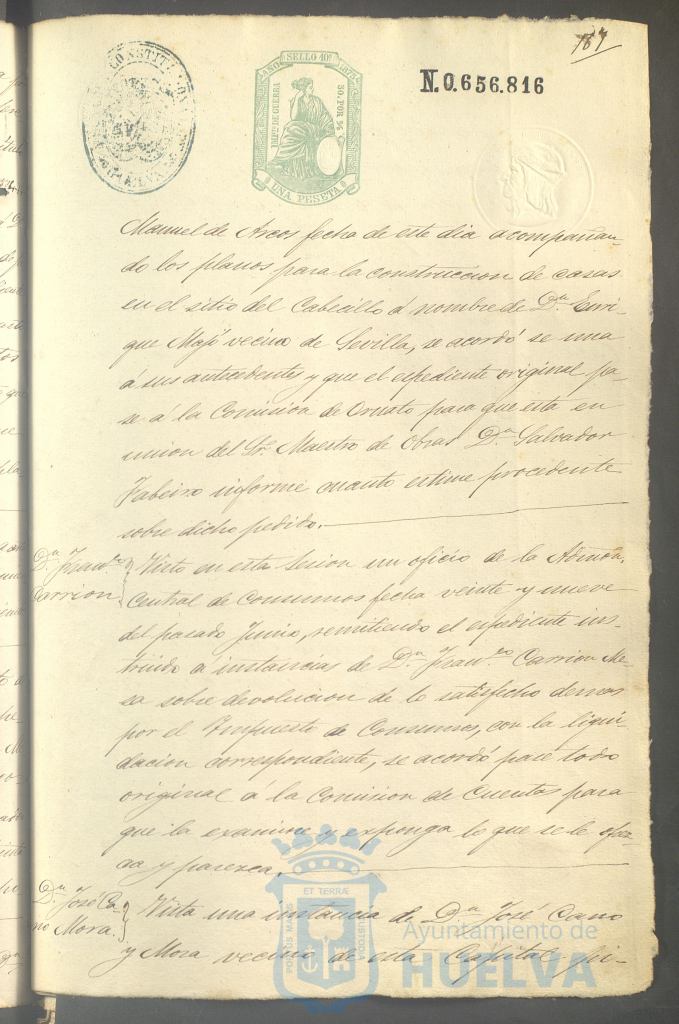 187
CONSTITUCION
AÑO SELLO 10º 1878
IMPTO DE GUERRA
50 POR %
UNA PESETA
N.0.656.816
Manuel de Arcos fecha de este dia acompañan-
do los planos para la construccion de casas
en el sitio del Cabecillo á nombre de Dn. Enri-
que Majó vecino de Sevilla, se acordó se una
á sus antecedentes y que el espediente original pa-
se á la Comision de Ornato para que esta en
union del Sr. Maestro de Obras Dn. Salvador
Fabeiro informe cuanto estime procedente
sobre dicho pedido.
Dn. Franco.
Carrion
Visto en esta sesion un oficio de la Admon.
Central de Consumos fecha veinte y nueve
del pasado Junio, remitiendo el espediente ins-
truido á instancias de Dn. Franco. Carrion Me-
sa sobre devolucion de lo satisfecho demas
por el Impuesto de Consumos, con la liqui-
dacion correspondiente, se acordó pase todo
original á la Comision de Cuentas para
que la examine y exponga lo que se le ofrez-
ca y parezca.
Dn. José Ca-
no Mora.
Vista una instancia de Dn. José Cano
y Mora vecino de esta Capital, pi-
ET TERRÆ
PORTUS MARIS
CUSTODIA
Ayuntamiento de
HUELVA